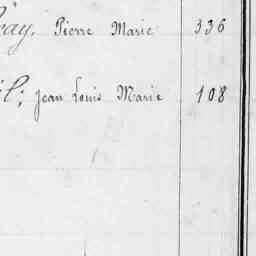 Pierre Marie 336
Jean Louis Marie 108